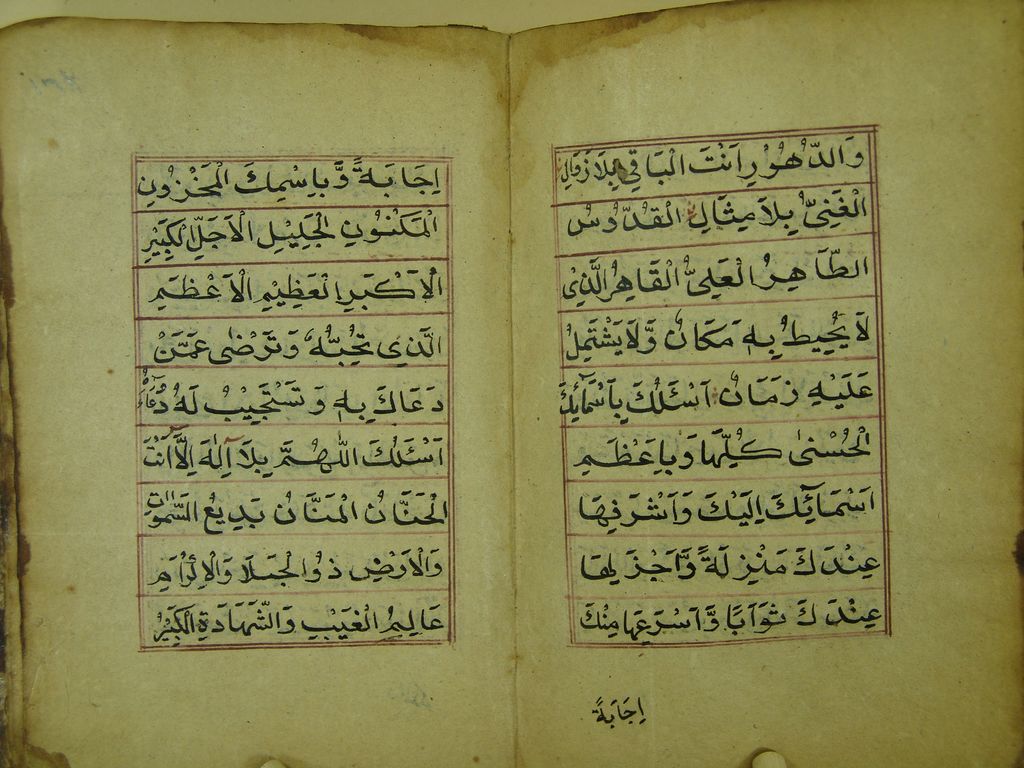 وَالدُّهُوْرِ اَنْتَ الْبَاقِيْ بِلَا زَوَالِ
الْغَنِيُّ بِلَا مِثَالِ الْقُدُّوْسُ
الطَّاهِرُ الْعَلِيُّ الْقَاهِرُ الَّذِيْ
لَا يُحِيْطُ بِهٖ مَكَانٌ وَّلَا يَشْتَمِلُ
عَلَيْهِ زَمَانٌ اَسْئَلُكَ بِاَسْمَآئِكَ
الْحُسْنٰى كُلِّهَا وَبِاِعْظَمِ
اَسْمَآئِكَ اِلَيْكَ وَاَشْرَفِهَا
عِنْدَكَ مَنْزِلَةً وَّاَجْزَلِهَا
عِنْدَكَ ثَوَابًا وَّاَسْرَعِهَا مِنْكَ
اِجَابَةً
اِجَابَةً وَّبِاِسْمِكَ الْمَخْزُوْنِ
الْمَكْنُوْنِ الْجَلِيْلِ الْاَجَلِّ الْكَبِيْرِ
الْاَكْبَرِ الْعَظِيْمِ الْاَعْظَمِ
الَّذِيْ تُحِبُّهٗ وَتَرْضٰى عَمَّنْ
دَعَاكَ بِهٖ وَتَسْتَجِيْبُ لَهٗ دُعَآءَهٗ
اَسْئَلُكَ اللّٰهُمَّ بِلَآ اِلٰهَ اِلَّآ اَنْتَ
الْحَنَّانُ الْمَنَّانُ بَدِيْعُ السَّمٰوَاتِ
وَالْاَرْضِ ذُوالْجَلَا وَالْاِكْرَامِ
عَالِمُ الْغَيْبِ وَالشَّهَادَةِ الْكَبِيْرُ